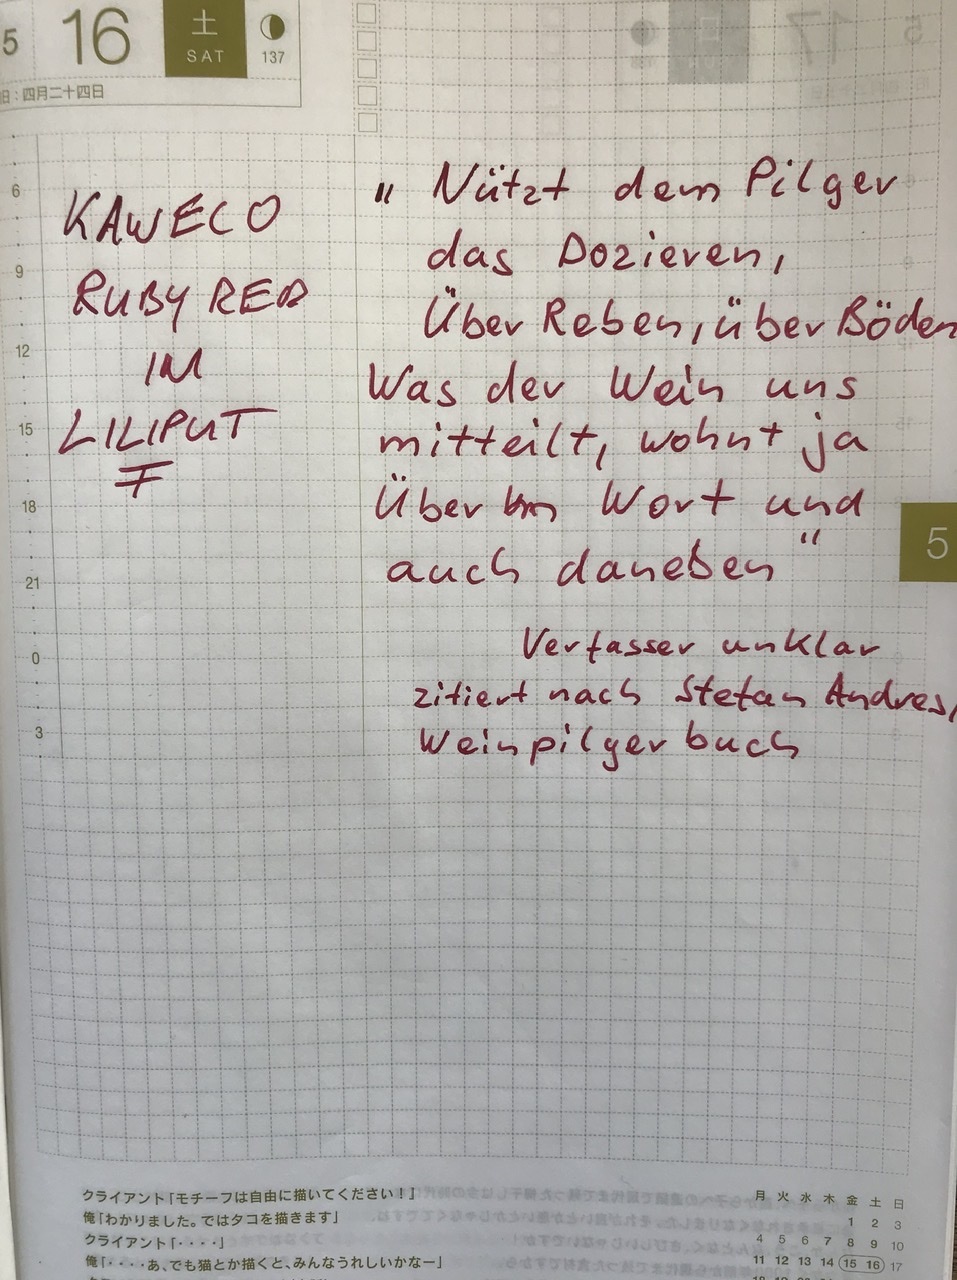 5 16 土 SAT 137
旧：四月二十四日
KAWECO
RUBY RED
IM
LILIPUT
F
" Nützt dem Pilger
das Dozieren,
Über Reben, über Böden
Was der Wein uns
mitteilt, wohnt ja
Über Wort und
auch daneben"
Verfasser unklar
zitiert nach Stefan Andres,
Weinpilgerbuch
6
9
12
15
18
21
0
3
5
クライアント「モチーフは自由に描いてください！」
俺「わかりました。ではタコを描きます」
クライアント「・・・・」
俺「・・・・あ、でも猫とか描くと、みんなうれしいかなー」
月 火 水 木 金 土 日
1 2 3
4 5 6 7 8 9 10
11 12 13 14 15 16 17